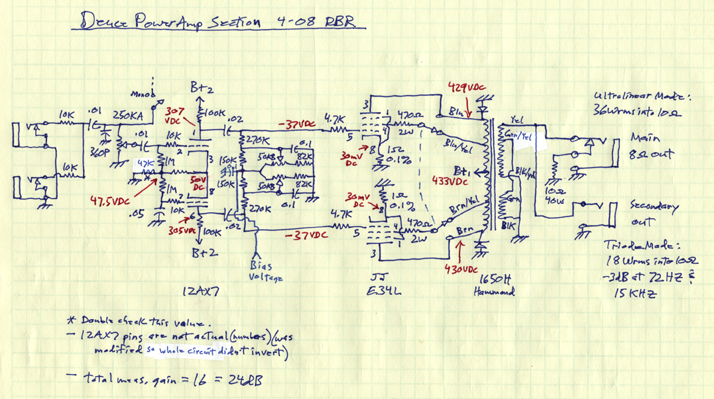 Deuce PowerAmp Section 4-08 RBR
Monob
B+2
307 VDC
100K
10K
.01
250KA
360P
.01
10K
1
2
.02
-37VDC
4.7K
270K
150K
150K
270K
50KB
50KB
0.1
82K
82K
0.1
10K
47K
1M
1M
50V DC
47.5VDC
.05
10K
7
8
6
305VDC
100K
B+2
.02
-37VDC
4.7K
Bias Voltage
12AX7
3
5
1
4
8
470Ω 2W
30mV DC
1Ω 0.1%
30mV DC
1Ω 0.1%
8
5
1
4
3
470Ω 2W
JJ E34L
429VDC
Blu
Blu/Yel
B+1
433VDC
Brn/Yel
Brn
430VDC
1650H Hammond
Yel
Grn/Yel
Blk/Yel
Grn
Blk
Main 8Ω out
10Ω 40W
Secondary out
Ultralinear Mode:
36Wrms into 10Ω
Triode Mode:
18Wrms into 10Ω
-3dB at 72HZ &
15KHZ
* Double check this value.
- 12AX7 pins are not actual (numbers) (was
modified so whole circuit didn't invert)
- total meas. gain = 16 = 24dB